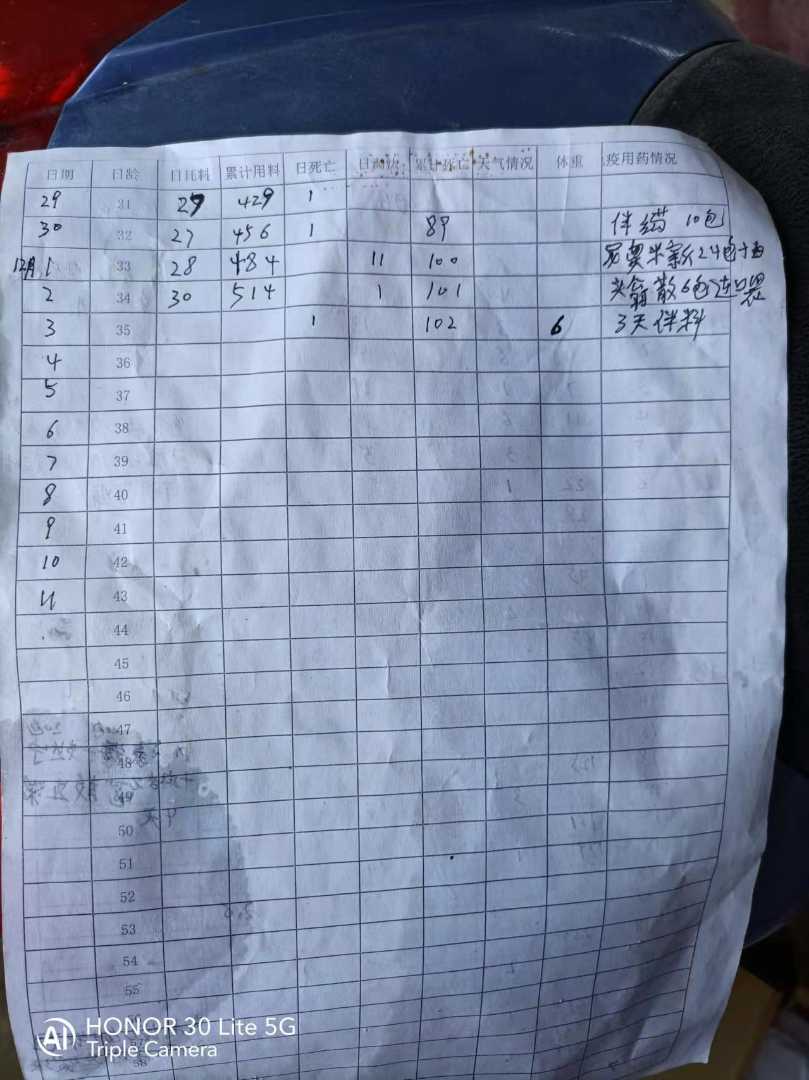 日期 日龄 日耗料 累计用料 日死亡 累计死亡 天气情况 体重 疫用药情况
29 31 27 429 1
30 32 27 456 1 89 伴 10包
12月 1 33 28 484 11 100 24包
2 34 30 514 1 101 散6包连
3 35 1 102 6 3天伴料
4 36
5 37
6 38
7 39
8 40
9 41
10 42
11 43
44
45
46
47
48
49
50
51
52
53
54
55
58
HONOR 30 Lite 5G
Triple Camera